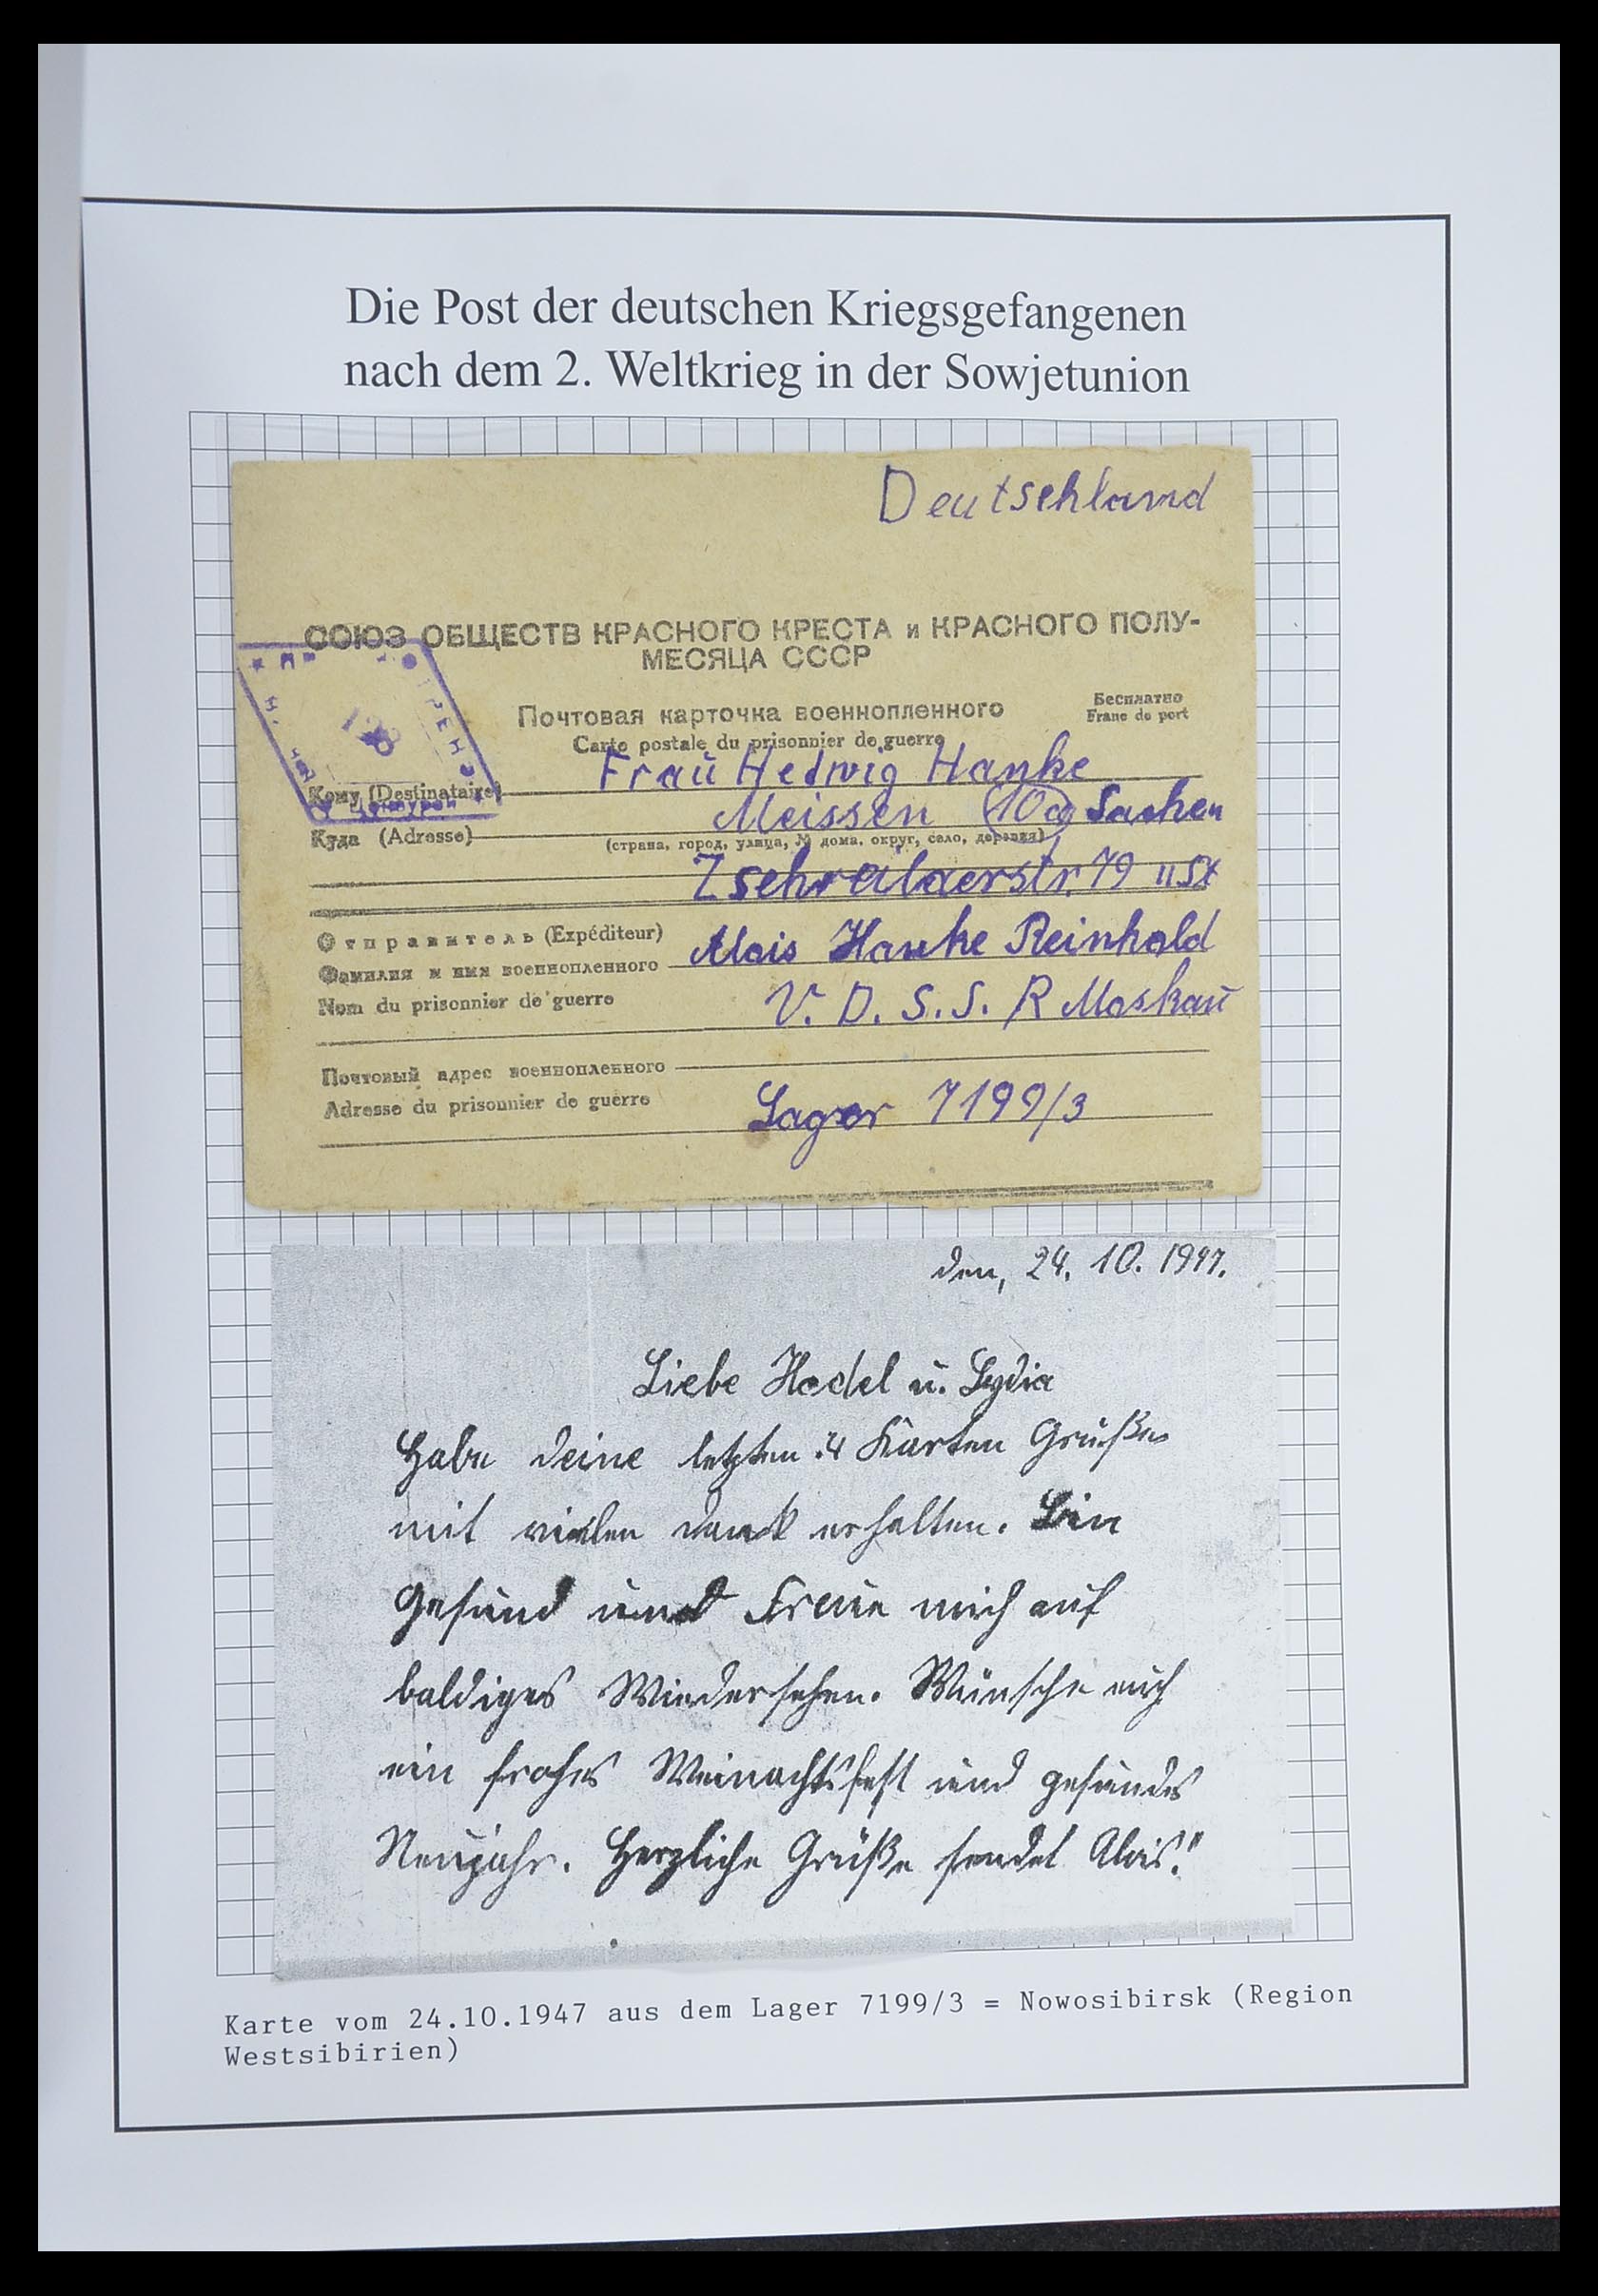 Die Post der deutschen Kriegsgefangenen
nach dem 2. Weltkrieg in der Sowjetunion
Deutschland
СОЮЗ ОБЩЕСТВ КРАСНОГО КРЕСТА и КРАСНОГО ПОЛУ-
МЕСЯЦА СССР
Почтовая карточка военнопленного
Бесплатно
Franc de port
Carte postale du prisonnier de guerre
Кому (Destinataire) Frau Hedwig Hanke
Meissen 10a Sachen
Куда (Adresse)
(страна, город, улица, № дома, округ, село, деревня)
Zscheilaerstr. 79 II St
Отправитель (Expéditeur)
Фамилия и имя военнопленного Alois Hanke Reinhold
Nom du prisonnier de guerre
U. D. S. S. R Moskau
Почтовый адрес военнопленного
Adresse du prisonnier de guerre
Lager 7199/3
den, 24. 10. 1947.
Liebe Hedel u. Lydia
Habe deine letzten 4 Karten Grüße
mit vielen dank erhalten. Bin
Gesund und Freue mich auf
baldiges Wiedersehen. Wünsche euch
ein frohes Weinachtsfest und gesundes
Neujahr. Herzliche Grüße sendet Alois!"
Karte vom 24.10.1947 aus dem Lager 7199/3 = Nowosibirsk (Region
Westsibirien)